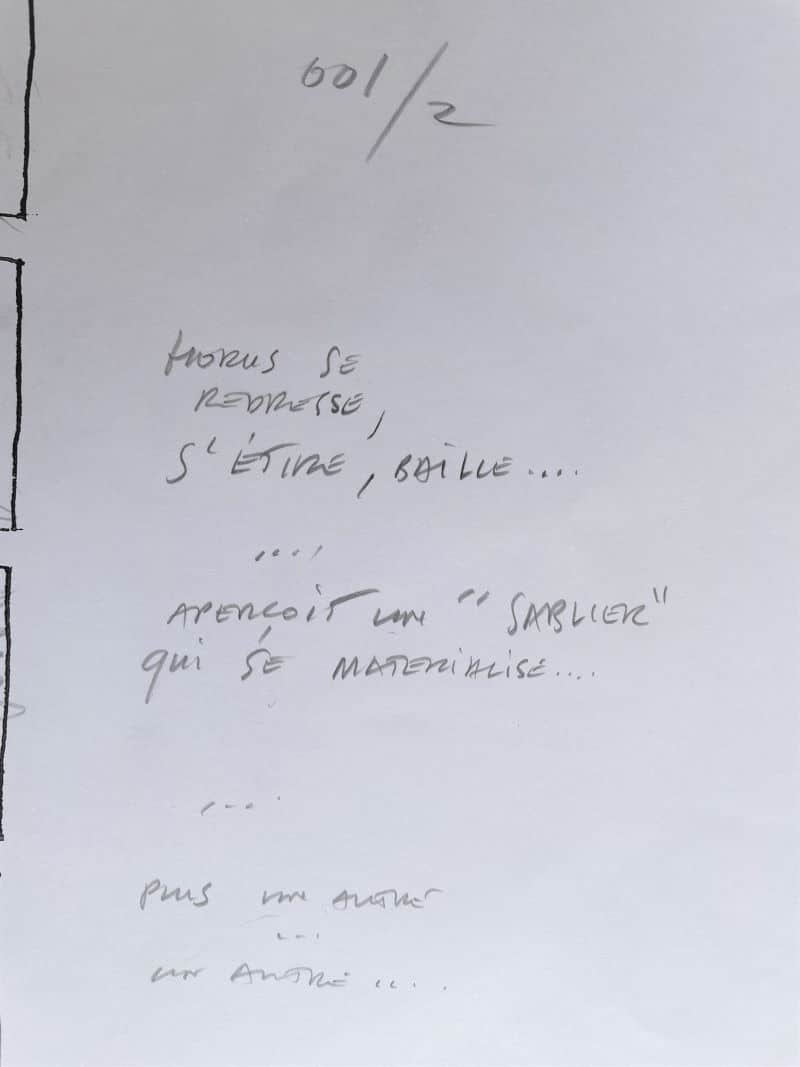 001/2
HORUS SE
REDRESSE,
S'ÉTIRE, BAÎLLE....
....
APERÇOIT UN "SABLIER"
QUI SE MATERIALISE....
....
PLUS UN AUTRE
...
UN AUTRE....